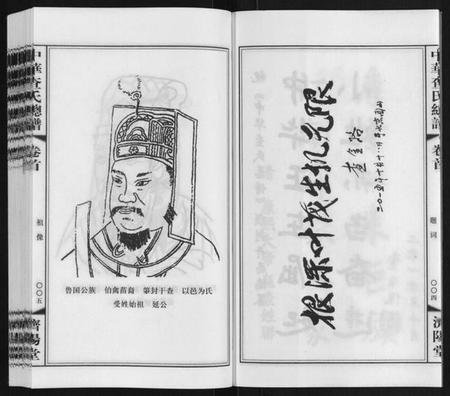 中華查氏總譜
卷首
題詞
〇〇四
濟陽堂
根深叶茂生机无限
查全性
中華查氏總譜
卷首
祖像
〇〇五
濟陽堂
鲁国公族 伯禽苗裔 肇封于查 以邑为氏
受姓始祖 延公